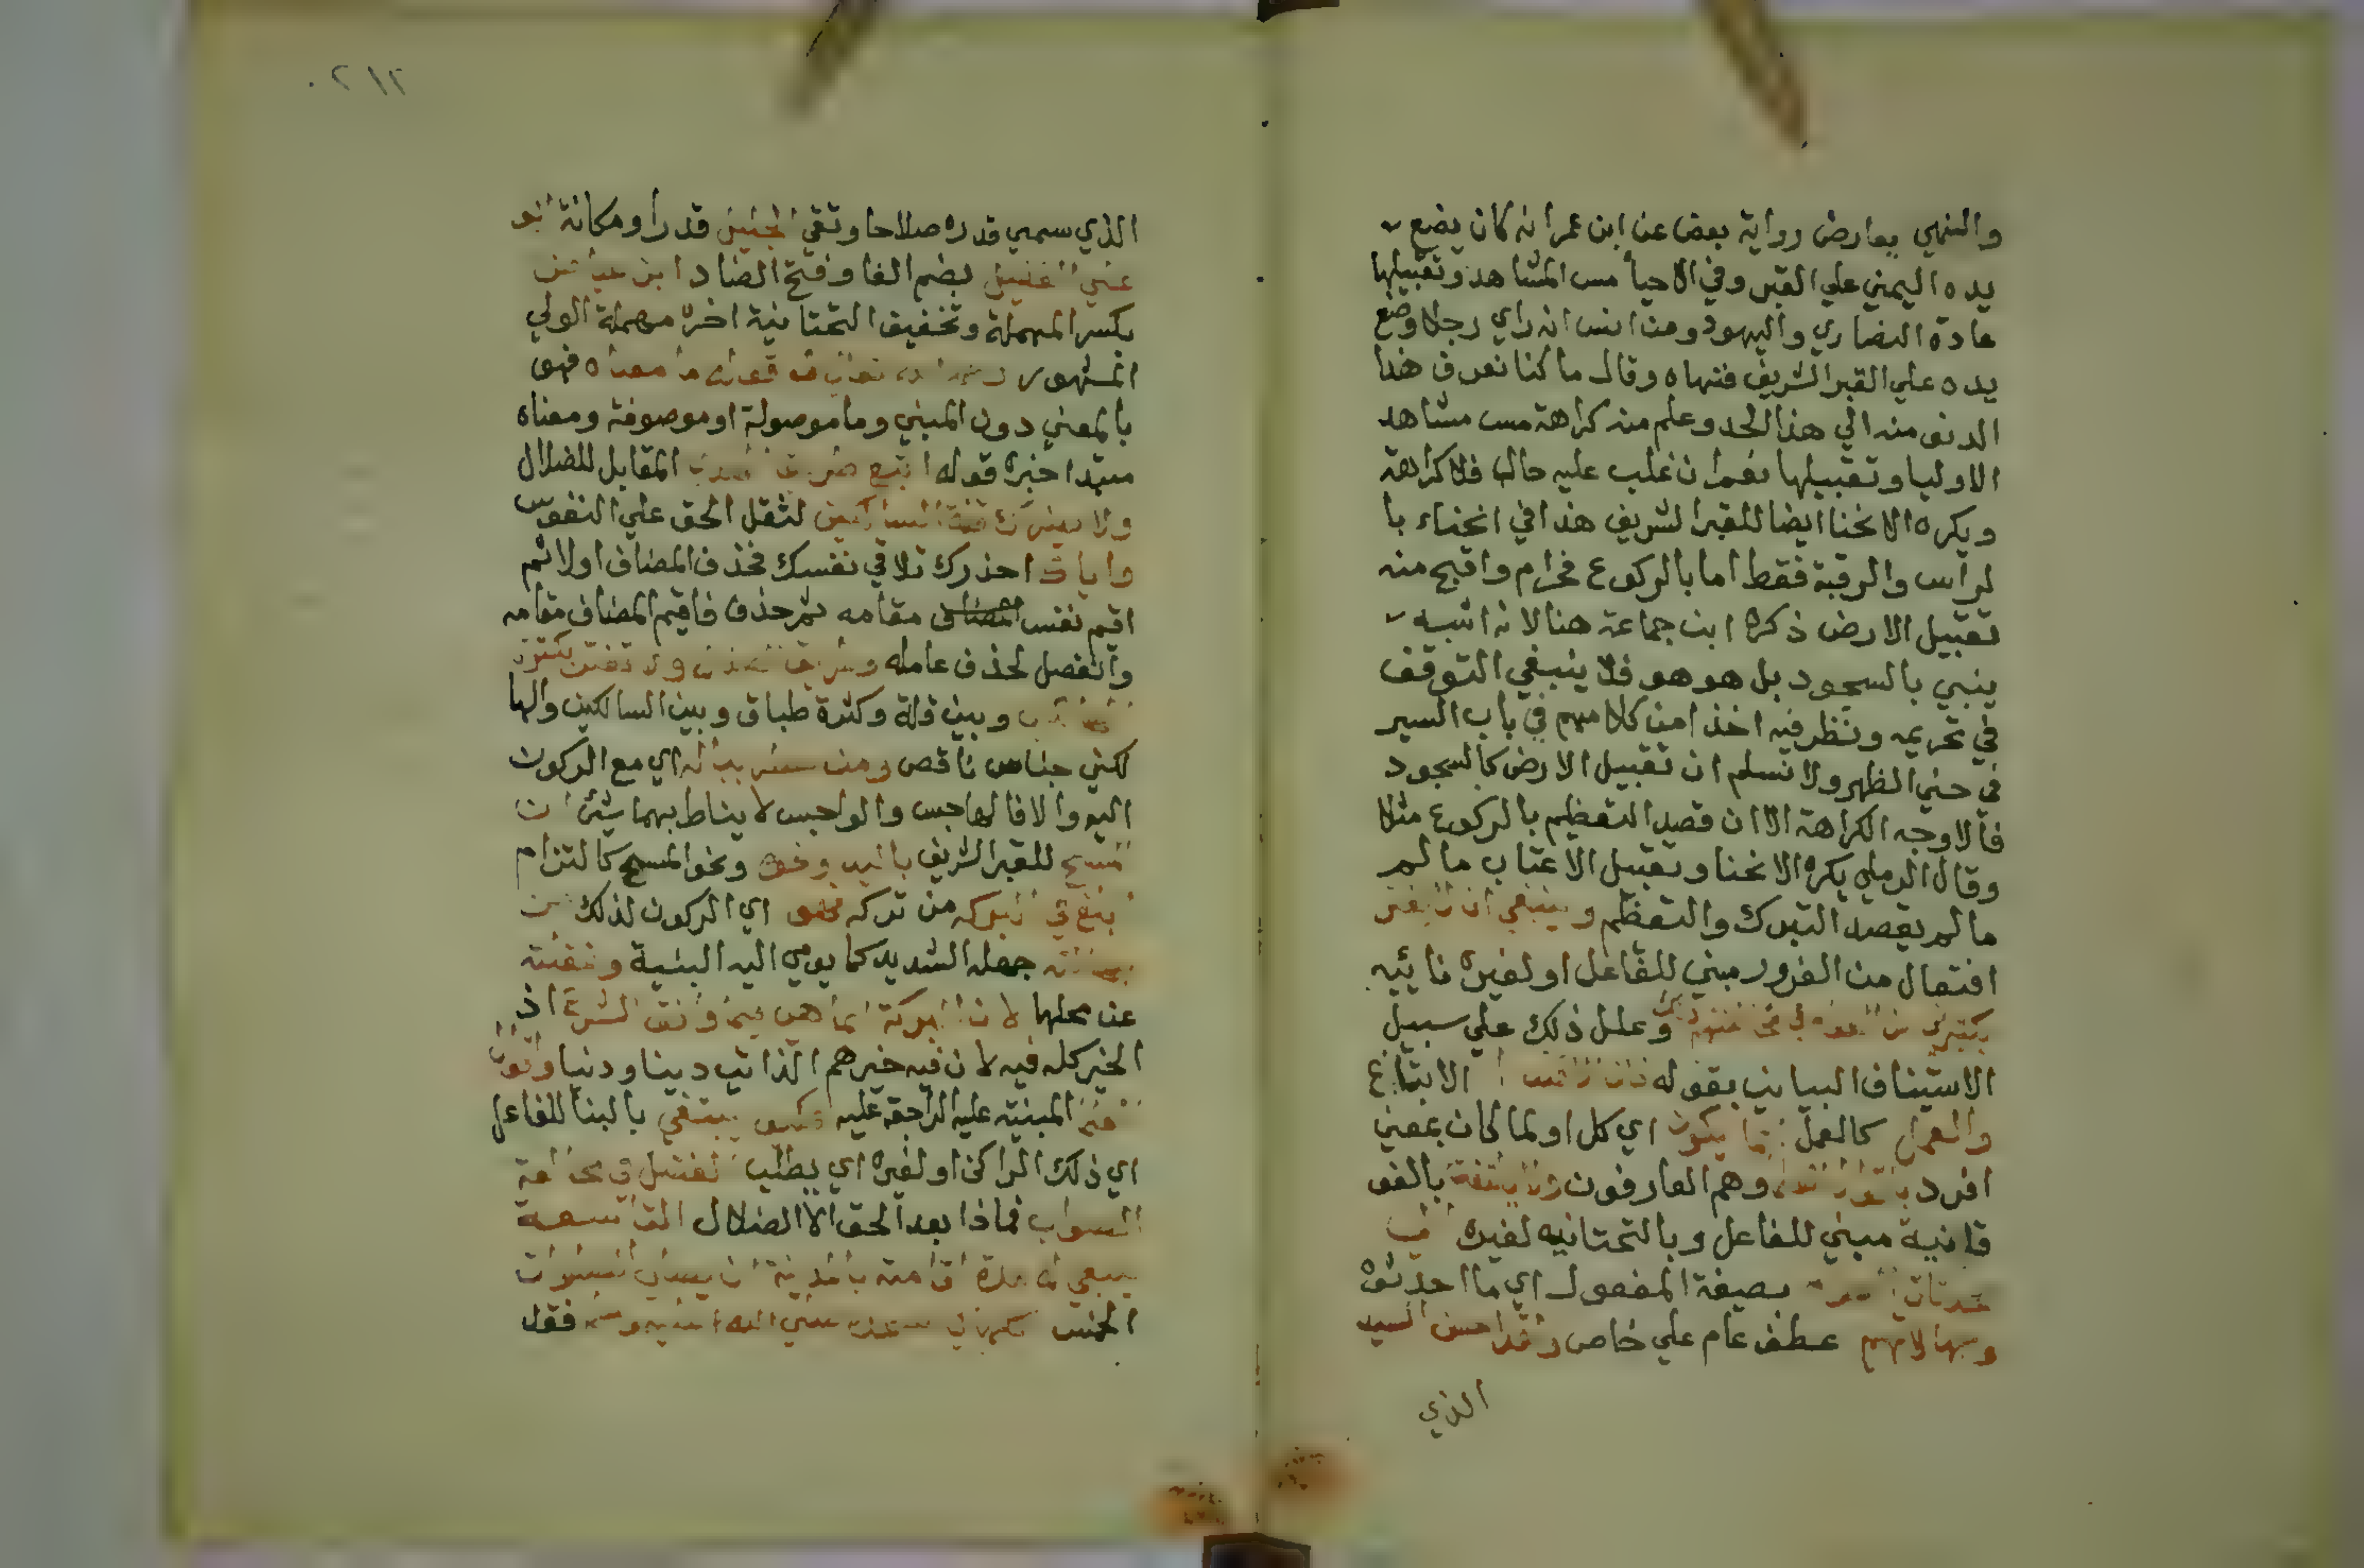 والنهي يعارض رواية بعض عن ابن عمر انه كان يضع
يده اليمني علي القبر وفي الاحيا مس المشاهد وتقبيلها
عادة النصاري واليهود ومن انس انه راي رجلا وضع
يده علي القبر الشريف فنهاه وقال ما كنا نعرف هذا
الدنو منه الي هذا الحد وعلم منه كراهة مس مشاهد
الاوليا وتقبيلها نعم ان غلب عليه حال فلا كراهة
ويكره الانحنا ايضا للقبر الشريف هذا في انحناء با
لراس والرقبة فقط اما بالركوع فحرام واقبح منه
تقبيل الارض ذكره ابن جماعة هنا لانه اشبه
ينبي بالسجود بل هو هو فلا ينبغي التوقف
في تحريمه ونظر فيه اخذا من كلامهم في باب السير
في حني الظهر ولا نسلم ان تقبيل الارض كالسجود
فالاوجه الكراهة الا ان قصد التعظيم بالركوع مثلا
وقال الرملي يكره الانحنا وتقبيل الاعتاب ما لم
ما لم يقصد التبرك والتعظم وينبغي ان لا يغتر
افتعال من الغرور مبني للفاعل او لغيره نائيه
وعلل ذلك علي سبيل
الاستيناف البياني بقوله الاتباع
والعمل كالعمل انما يكون اي كل او لما كان بمعني
افرد وهم العارفون ولا يلتفت بالفو
قانية مبني للفاعل وبالتحتانيه لغيره الي
بصيغة المفعول اي ما احدثوه
وجهالاتهم عطف عام علي خاص ولقد احسن السيد
الذي
٢١٢
الذي سمي قدره صلاحا وتقي الجليل قدرا ومكانة ابو
علي الفضيل بضم الفا وفتح الضاد ابن عياض
بكسر المهملة وتخفيف التحتانية اخره مهملة الولي
المشهور قوله ما معناه فهو
بالمعني دون المبني وما موصولة او موصوفة ومعناه
مبتدا خبره قوله اتبع طريق الهدي المقابل للضلال
ولا يضرك قلة السالكين لثقل الحق علي النفوس
واياك احذرك تلاقي نفسك فحذف المضاف اولا ثم
اقيم نفس المضاف مقامه ثم حذف فاقيم المضاف مقامه
وانفصل لحذف عامله وطريق الضلال ولا تغتر بكثرة
وبين قلة وكثرة طباق وبين السالكين والها
لكين جناس ناقص ومن اي مع الركون
اليه والا فالهاجس والواجس لا يناط بهما شئ ان
المسح للقبر الشريف باليد ونحوه ونحو المسح كالتزام
ابلغ في البركه من تركه فهو اي الركون لذلك من
جهله الشديد كما يومي اليه البنية وغفلته
عن محلها لان البركة انما هي فيما وافق الشرع اذ
الخير كله فيه لان فيه خيرهم الذاتي دينا ودنيا واقوال
المبنيه عليه الراجحة عليه فكيف يبتغي بالبنا للفاعل
اي ذلك الراكن او لغيره اي يطلب الفضل في مخالفة
الصواب فماذا بعد الحق الا الضلال التاسعة
ينبغي له مدة اقامته بالمدينة ان يصلي الصلوات
الخمس كلها في مسجده صلي الله عليه وسلم فقد